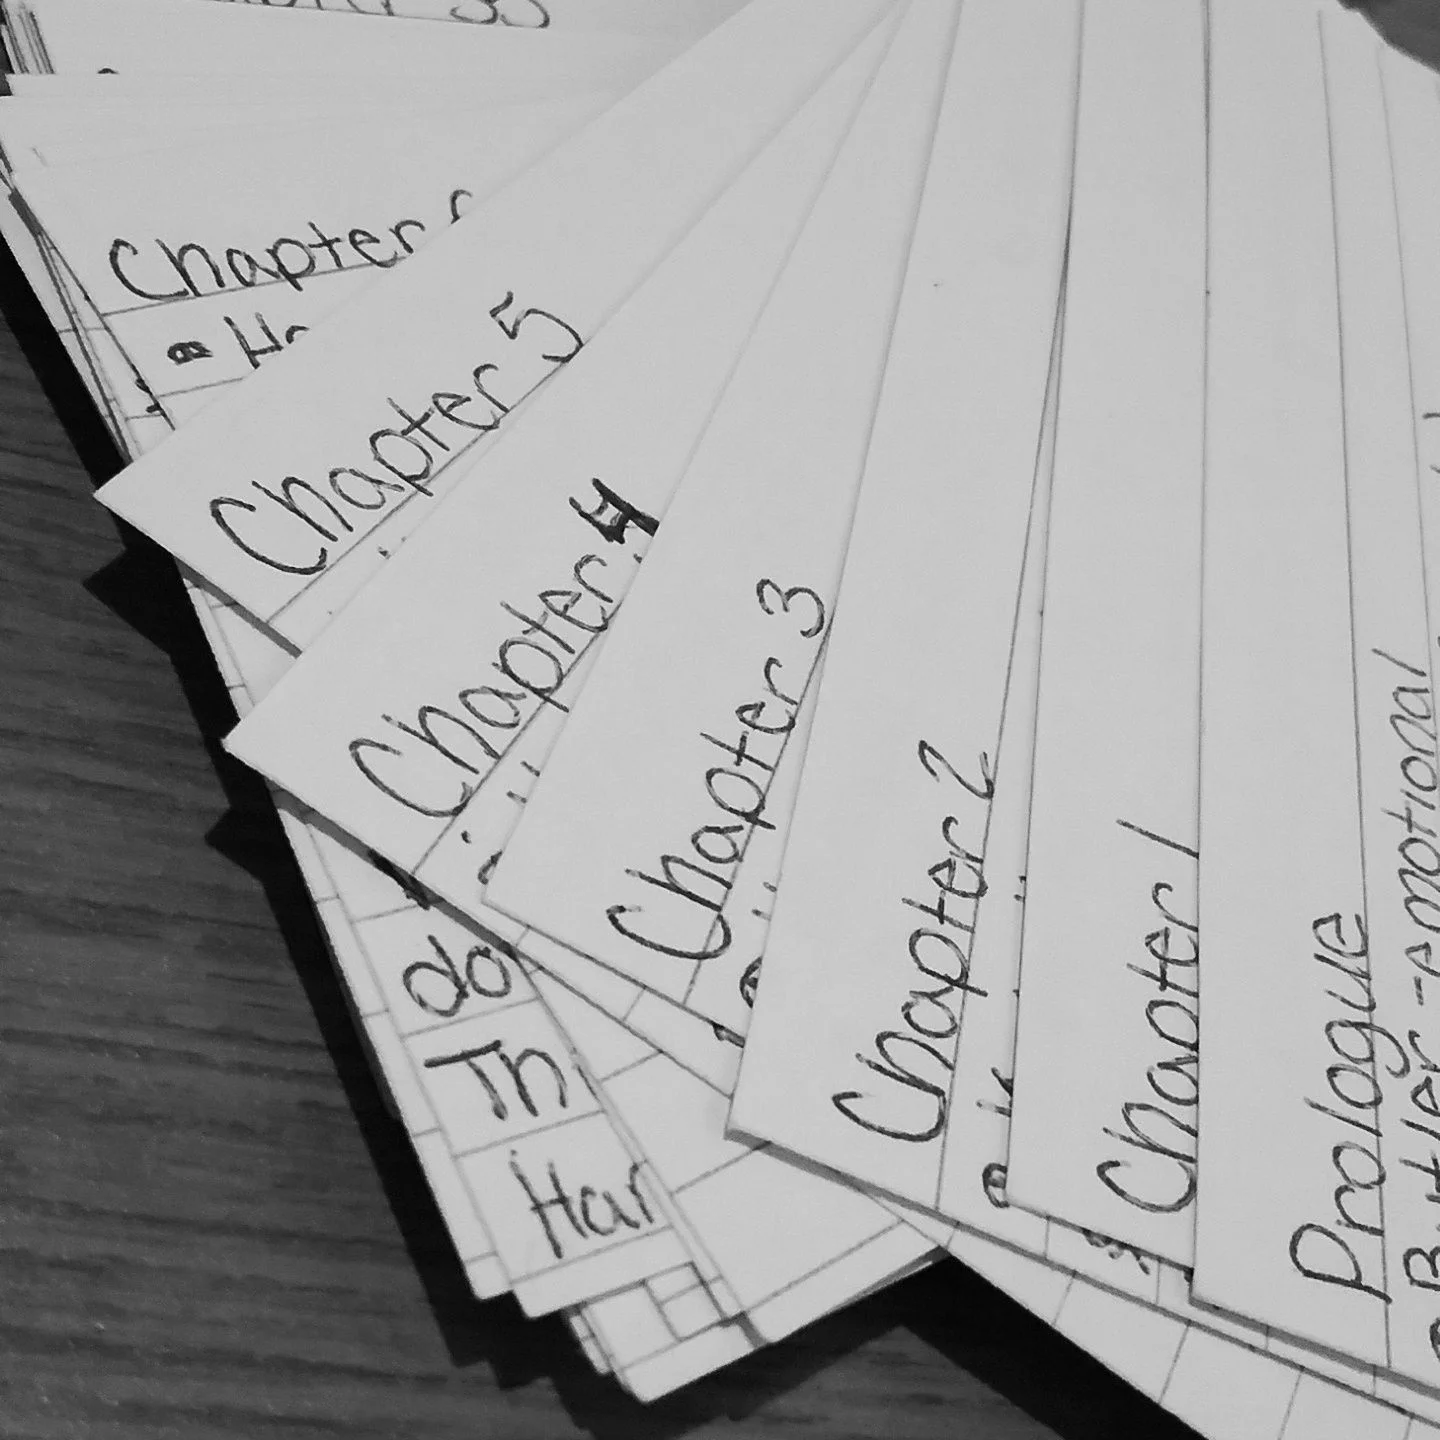 Chapter
Chapter 5
Chapter 4
Chapter 3
Chapter 2
Chapter 1
Prologue
Butler -emotional
do
Th
Har